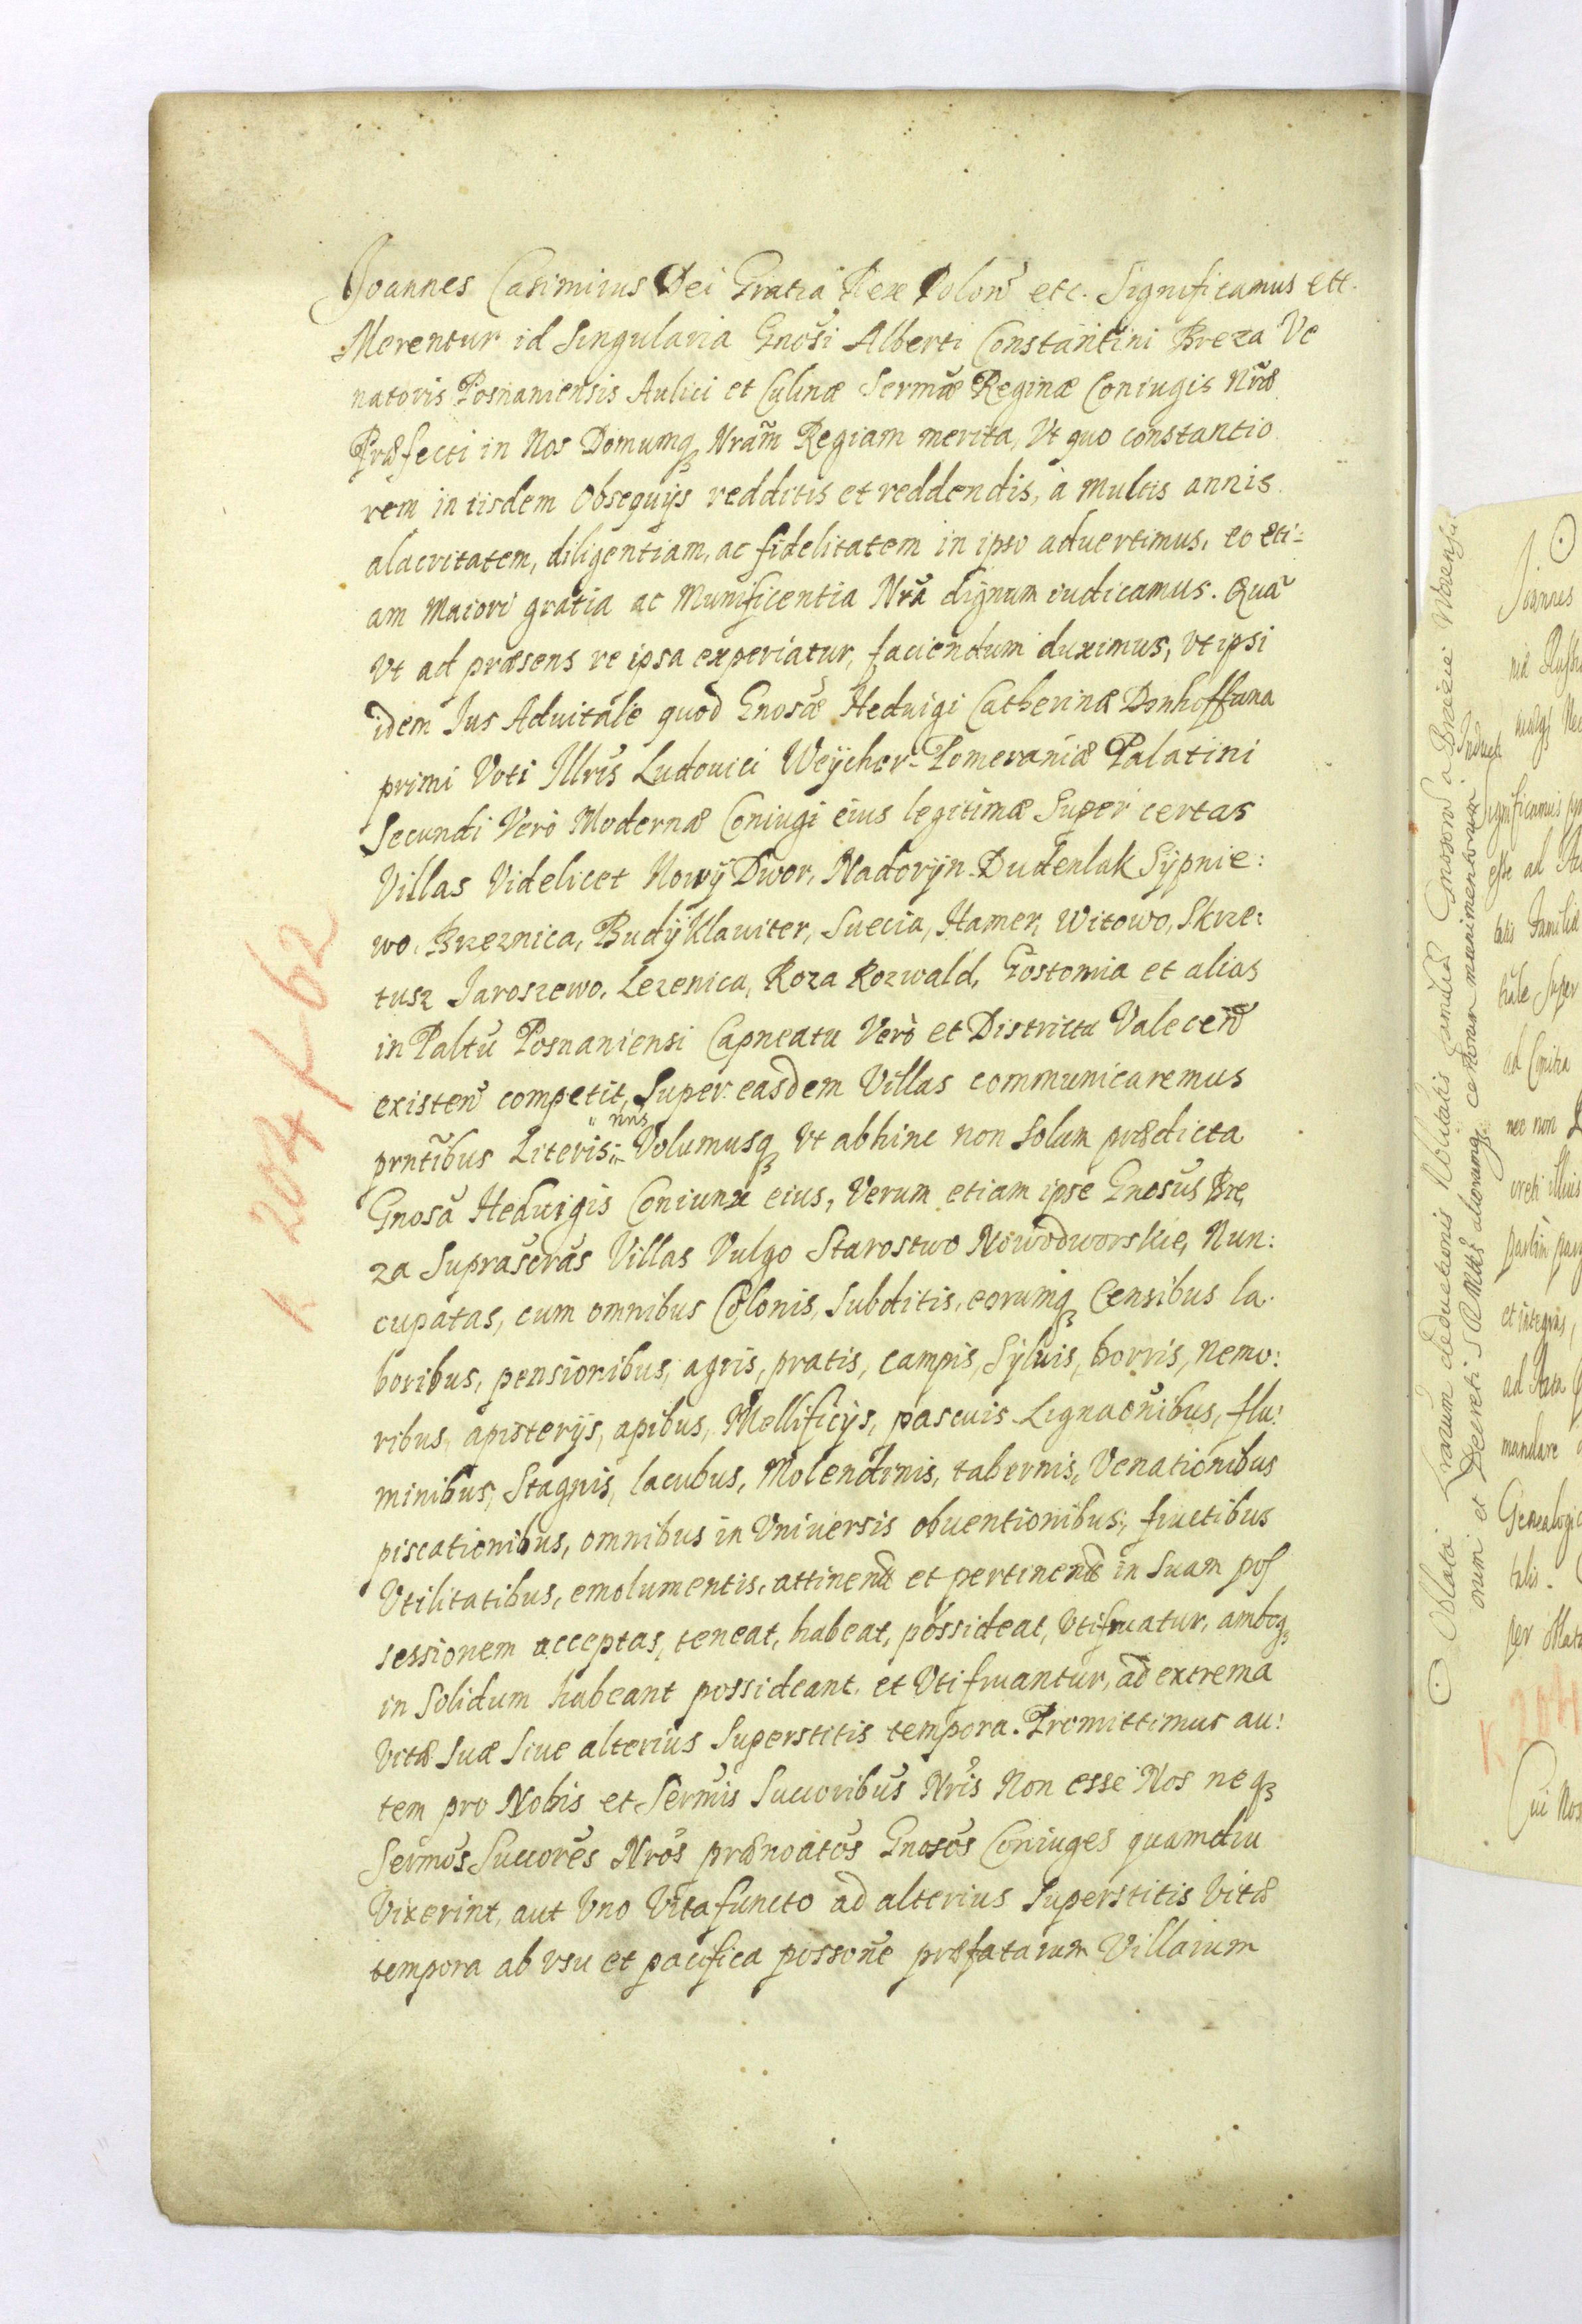 Joannes Casimirus Dei Gratia Rex Polon̄ etc. Significamus ett.
Merentur id Singularia Gnosi Alberti Constantini Breza Ve
natoris Posnaniensis Aulici et Culinæ Sermæ Reginæ Coniugis Nræ
Præfecti in Nos Domumqꝫ Nram̃ Regiam merita, Vt quo constantio
rem in iisdem Obsequijs redditis et reddendis, à multis annis
alacritatem, diligentiam, ac fidelitatem in ipso aduertimus, eo eti=
am Maiori gratia ac Munificentia Nrã dignum iudicamus. Quã
Vt ad præsens re ipsa experiatur, faciendum duximus, vt ipsi
idem Jus Aduitale quod Gnosæ Heduigi Catherinæ Donhoffuna
primi Voti Illris Ludouici Weÿcher Pomeraniæ Palatini
Secundi Verò Modernæ Coniugi eius legitimæ Super certas
Villas Videlicet Nowÿ Dwor, Nadorÿn Dudenlak Sÿpnie:
wo, Brzeznica, Budÿ Klawiter, Suecia, Hamer, Witowo, Skrze:
tusz Jaroszewo, Lezenica, Roza Rozwald, Gostomia et alias
in Paltũ Posnaniensi Capneatu Verò et Districtu Valecen̄
existen̄ competit, Super easdem Villas communicaremus
prntĩbus Literis nris Volumusqꝫ Vt abhinc non solum prædicta
Gnosa Heduigis Coniunx eius, Verum etiam ipse Gnosus Bre
za Suprascras Villas Vulgo Starostwo Nowodworskie, Nun:
cupatas, cum omnibus Colonis, Subditis, eorumqꝫ Censibus la
boribus, pensionibus, agris, pratis, campis, Sÿluis, borris, nemo:
ribus, apisterijs, apibus, Mellificijs, pascuis Lignaonibus, flu:
minibus, Stagnis, lacubus, Molendinis, tabernis, Venationibus
piscationibus, omnibus in Vniuersis obuentionibus, fructibus
Vtilitatibus, emolumentis, attinen et pertinen in Suam pos
sessionem acceptas, teneat, habeat, possideat, Vtifruatur, amboqꝫ
in Solidum habeant possideant, et Vtifruantur, ad extrema
Vitæ Suæ Siue alterius Superstitis tempora. Promittimus au:
tem pro Nobis et Sermis Succoribus Nris Non esse Nos neqꝫ
Sermos Succores Nros prænoatos Gnosos Coniuges quamdiu
Vixerint, aut Vno Vita functo ad alterius Superstitis Vitæ
tempora ab vsu et pacifica possone præfatarum Villarum
K 204 K 62
Oblata Lrarum deductionis Nobilitatis Familiæ Gnosorum à Brzezie
orum et Decreti S R Mttis aliorumqꝫ certorum munimentorum
Joannes
Significamus
esse ad
talis Familiæ
tiale Super
ad Comitia
nec non
partim
et integras,
mandare
Genealogic
talis.
per
K 204
Cui Nos